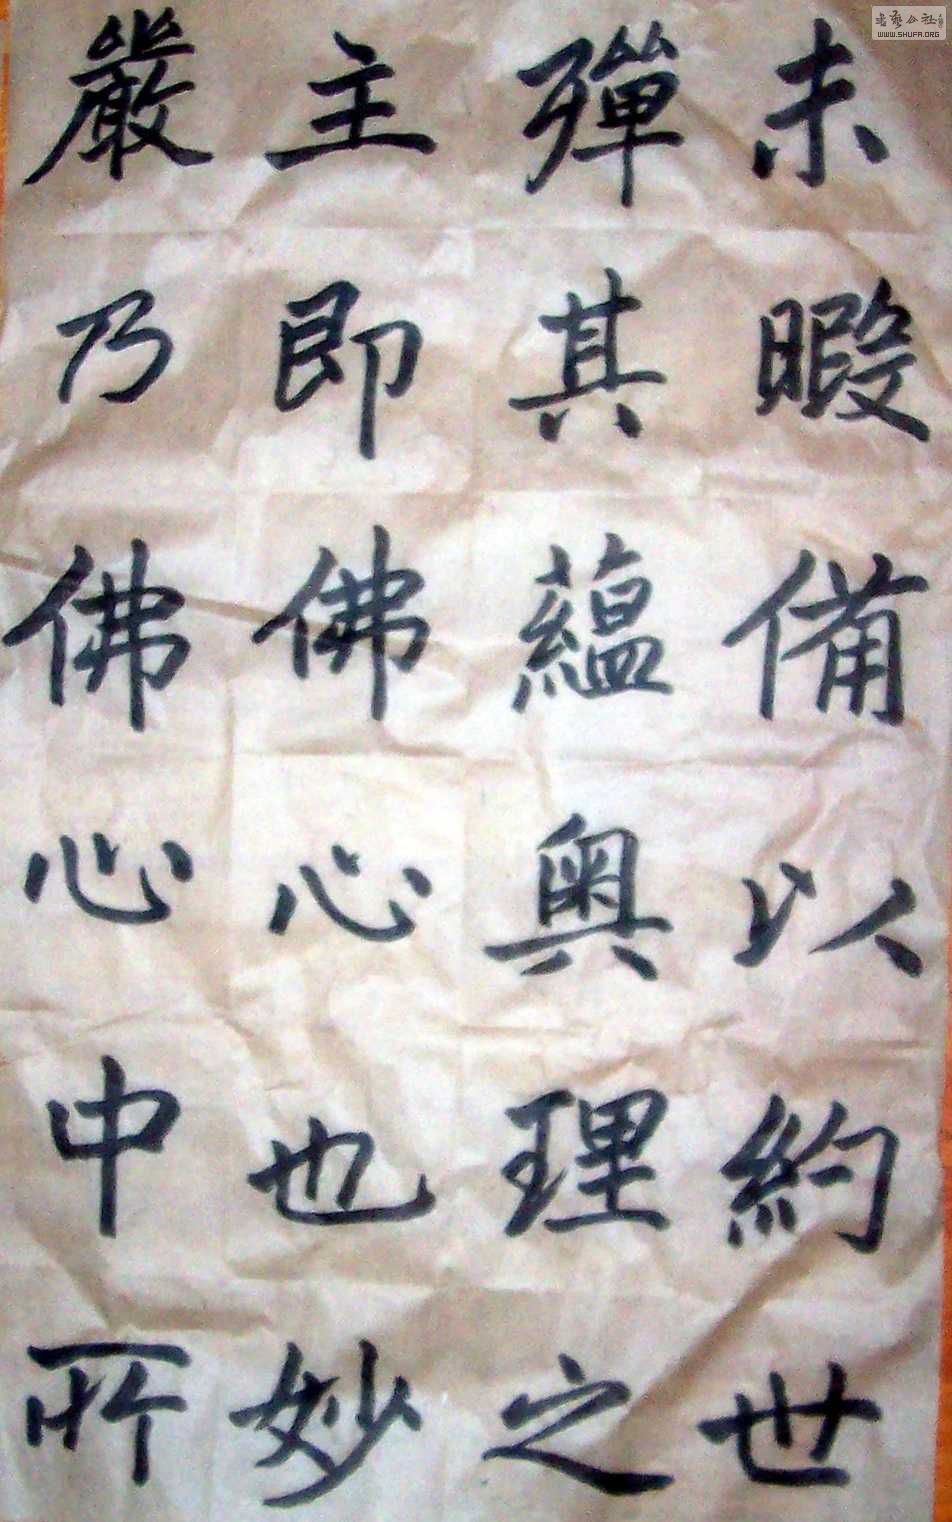 未暇備以約世
彈其蘊奧理之
主即佛心也妙
嚴乃佛心中所
書藝公社
WWW.SHUFA.ORG